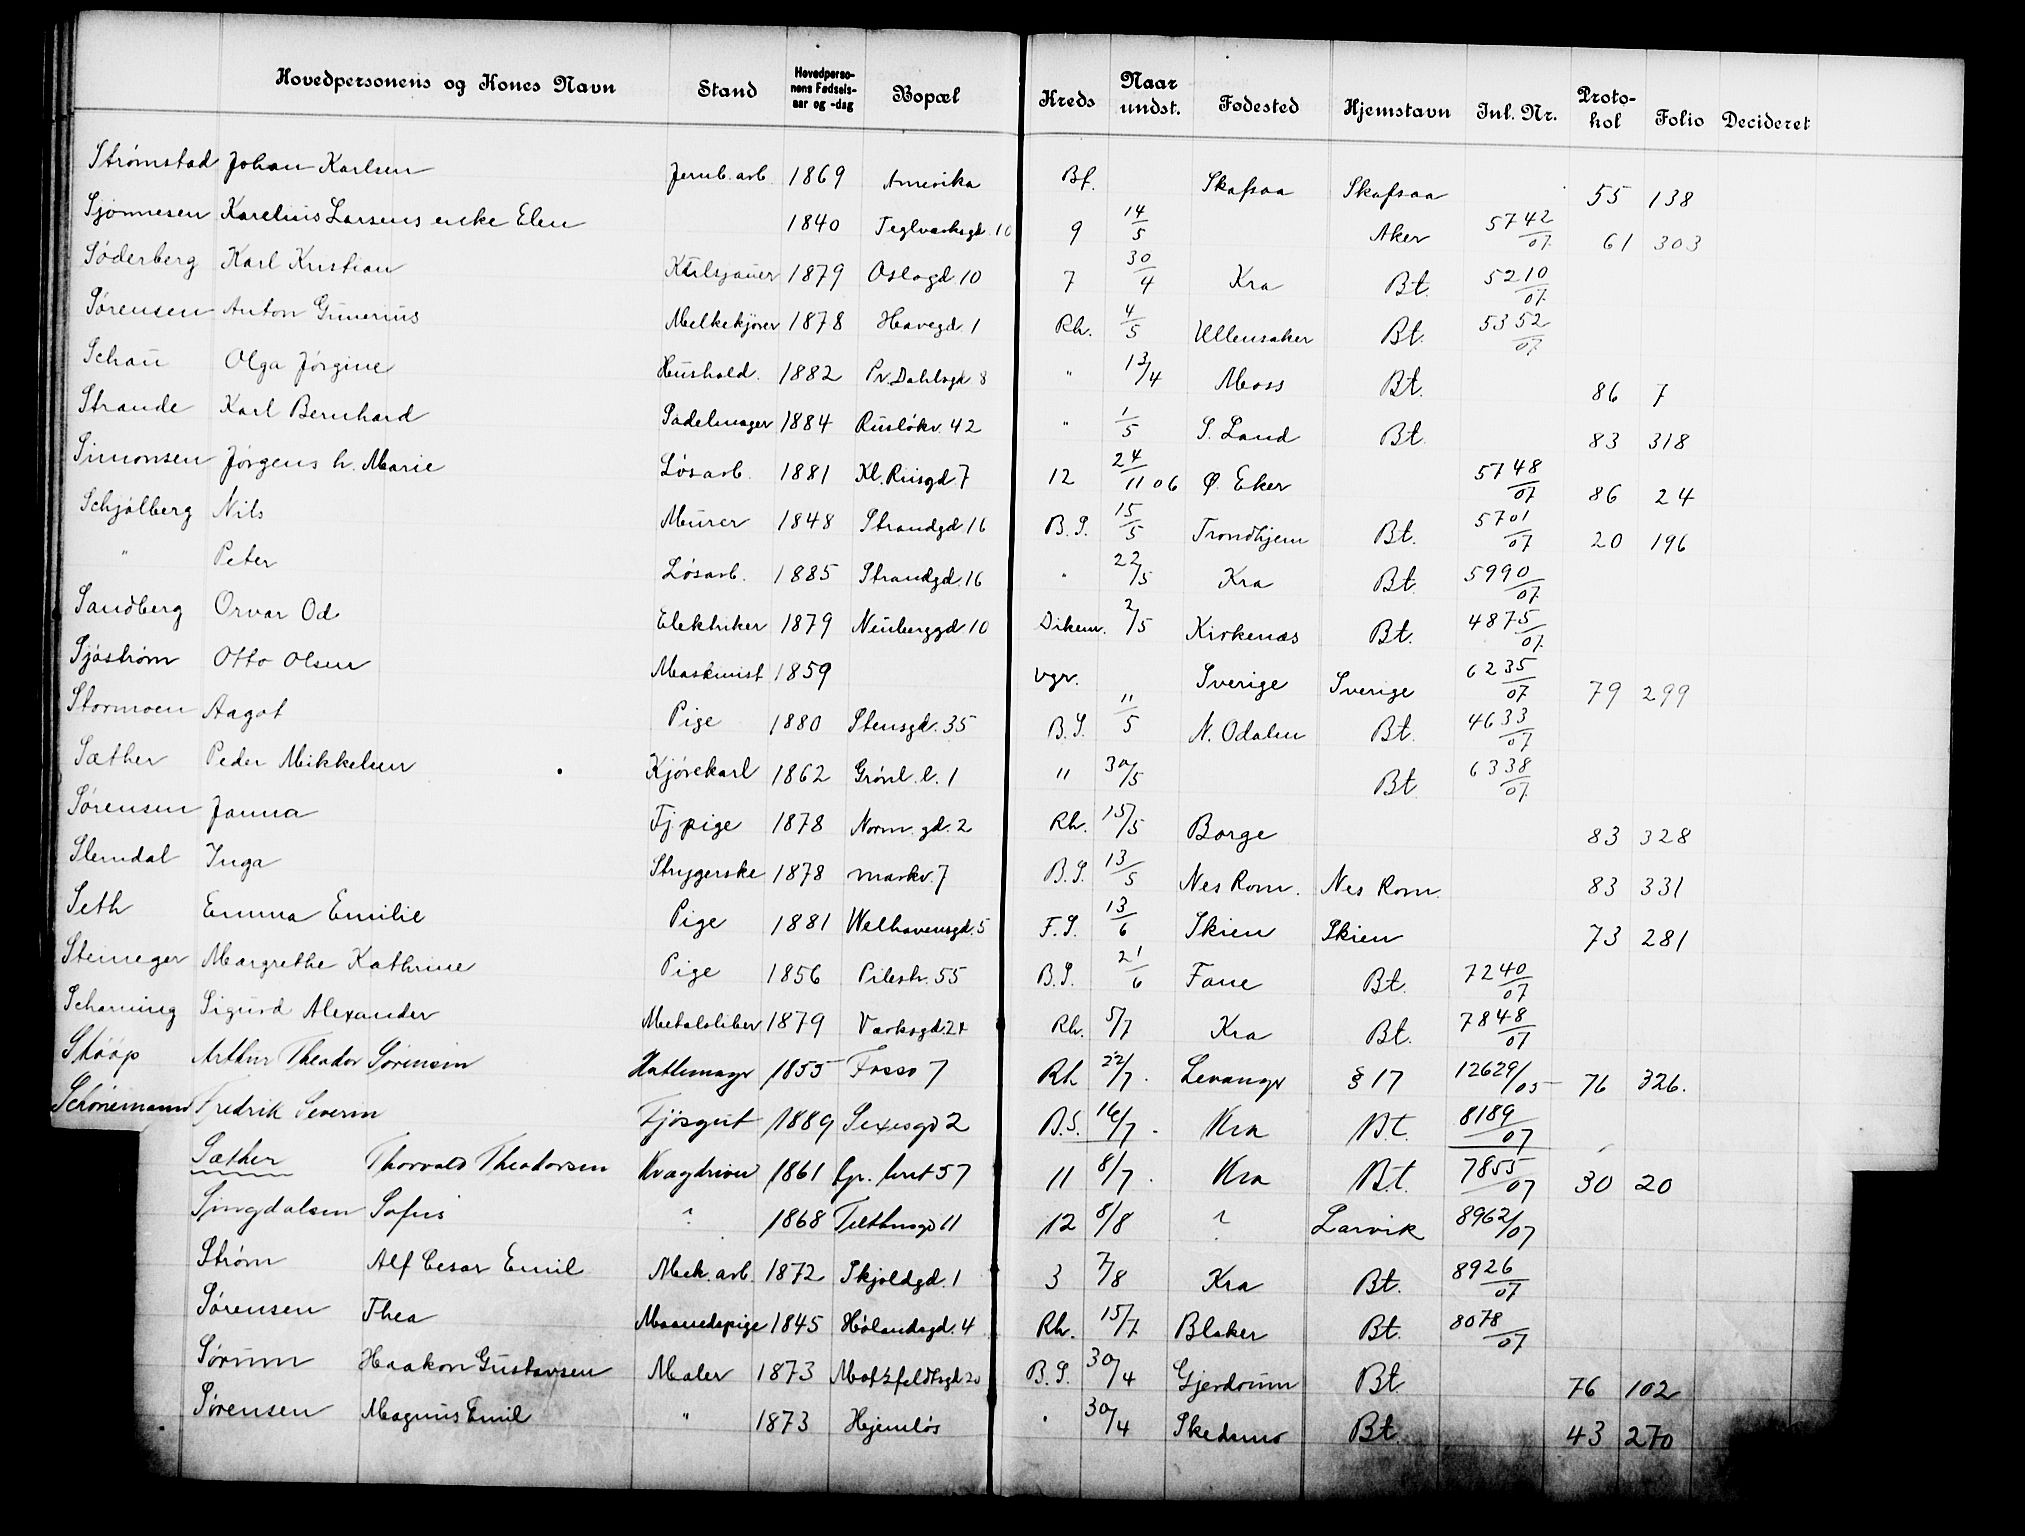 Hovedpersonens og Kones Navn Stand Hovedpersonens Fødsels-aar og -dag Bopæl Kreds Naar undst. Fødested Hjemstavn Inl. Nr. Protokol Folio Decideret
Strømstad Johan Karlsen Jernb. arb. 1869 Amerika Bf. Skafsaa Skafsaa 55 138
Sjønnesen Karelius Larsens enke Elen 1840 Teglverksgd. 10 9 14/5 Aker 5742/07 61 303
Søderberg Karl Kristian 1879 Oslogd. 10 7 30/4 Kra Bt. 5210/07
Sørensen Anton Gunerius Melkekjører 1878 Havegd. 1 Rh. 4/5 Ullensaker Bt. 5352/07
Schau Olga Jørgine Hushold. 1882 Pr. Dahlsgd 8 " 13/4 Moss Bt. 86 7
Strande Karl Bernhard Sadelmager 1884 Rusløkv. 42 " 1/5 S. Land Bt. 83 318
Simonsen Jørgens h. Marie Løsarb. 1881 Kl. Riisgd 7 12 24/11 06 Ø. Eker 5748/07 86 24
Schjølberg Nils Murer 1848 Strandgd 16 B. S. 15/5 Trondhjem Bt. 5701/07 20 196
" Peter Løsarb. 1885 Strandgd. 16 " 22/5 Kra Bt. 5990/07
Sandberg Orvar Od Elektriker 1879 Neuberggd. 10 Dikem. 2/5 Kirkenæs Bt. 4875/07
Sjøstrøm Otto Olsen Maskinist 1859 vgr. Sverige Sverige 6235/07 79 299
Stormoen Aagot Pige 1880 Stensgd. 35 B. S. 11/5 N. Odalen Bt. 4633/07
Sæther Peder Mikkelsen Kjørekarl 1862 Grønl. l. 1 " 30/5 Bt. 6338/07
Sørensen Janna Tj. pige 1878 Norm. gd. 2 Rh. 15/5 Borge 83 328
Slemdal Inga Strygerske 1878 markv. 7 B. S. 13/5 Nes Rom. Nes Rom. 83 331
Seth Emma Emilie Pige 1881 Welhavensgd. 5 F. S. 13/6 Skien Skien 73 281
Steineger Margrethe Kathrine Pige 1856 Pilestr. 55 B. S. 21/6 Fane Bt. 7240/07
Scharning Sigurd Alexander Metalsliber 1879 Værksgd. 24 Rh. 5/7 Kra Bt. 7848/07
Skøøp Arthur Theodor Sørensen Hattemagr 1855 Fosso 7 Rh 22/7. Levangr § 17 12629/05 76 326.
Schønemann Fredrik Severin Tjösgut 1889 Sexesgd 2 B. S. 16/7. Kra Bt. 8189/07
Sæther Thorvald Theodorsen Kvægdriver 1861 Gr. leret 57 11 8/7. Kra Bt. 7855/07 30 20
Singdalsen Sofus ? 1868 Tilthusgd 11 12 8/8 ? Larvik 8962/07
Strøm Alf Cesar Emil Mek. arb. 1872 Skjoldgd. 1 3 7/8 Kra Bt. 8926/07
Sørensen Thea Maanedspige 1845 Hølandsgd. 4 Rh. 15/7 Blaker Bt. 8078/07
Sørum Haakon Gustavsen Maler 1873 Motzfeldtsgd 20 B. S. 30/4 Gjerdrum Bt 76 102
Sørensen Magnus Emil " 1873 Hjemløs " 30/4 Skedsmo Bt. 43 270